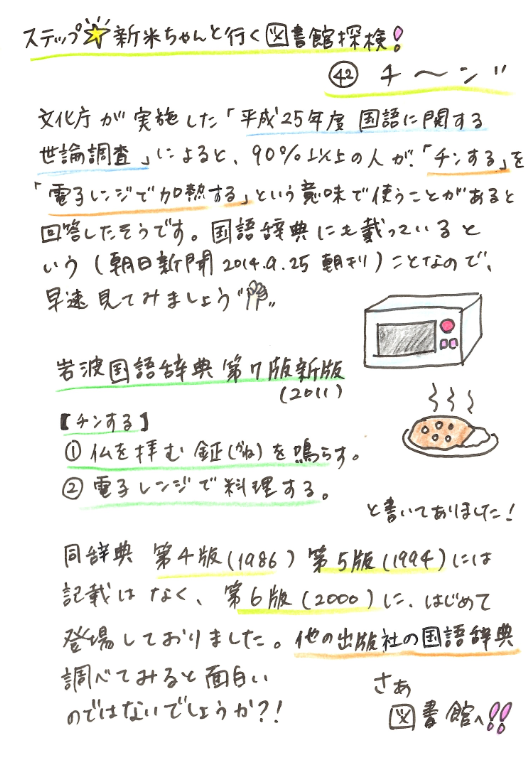 ステップ☆新米ちゃんと行く図書館探検!
㊷ チ〜ン"
文化庁が実施した「平成25年度 国語に関する
世論調査」によると、90%以上の人が、「チンする」を
「電子レンジで加熱する」という意味で使うことがあると
回答したそうです。国語辞典にも載っていると
いう (朝日新聞 2014.9.25 朝刊) ことなので、
早速 見てみましょう
岩波国語辞典 第7版新版
(2011)
【チンする】
① 仏を拝む 鉦(かね)を鳴らす。
② 電子レンジで料理する。
と書いてありました!
同辞典 第4版(1986) 第5版(1994)には
記載は なく、第6版(2000)に、はじめて
登場しておりました。他の出版社の国語辞典
調べてみると面白い
のではないでしょうか?!
さあ
図書館へ!!